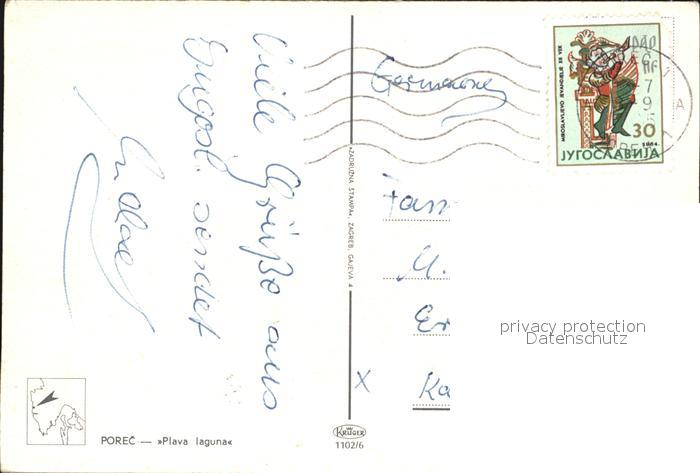 Viele Grüße aus
Jugosl. sendet
Germany
Fam
M.
Ka
X
privacy protection
Datenschutz
MIROSLAVLJEVO JEVANĐELJE XII VEK
30
1964
ЈУГОСЛАВИЈА
»ZADRUŽNA ŠTAMPA«, ZAGREB, GAJEVA 4
POREČ — »Plava laguna«
KRÜGER
1102/6